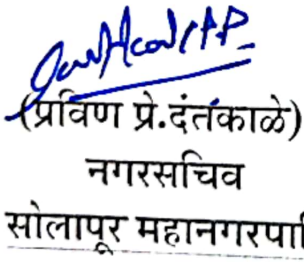 (प्रविण प्रे.दंतकाळे)
नगरसचिव
सोलापूर महानगरपा